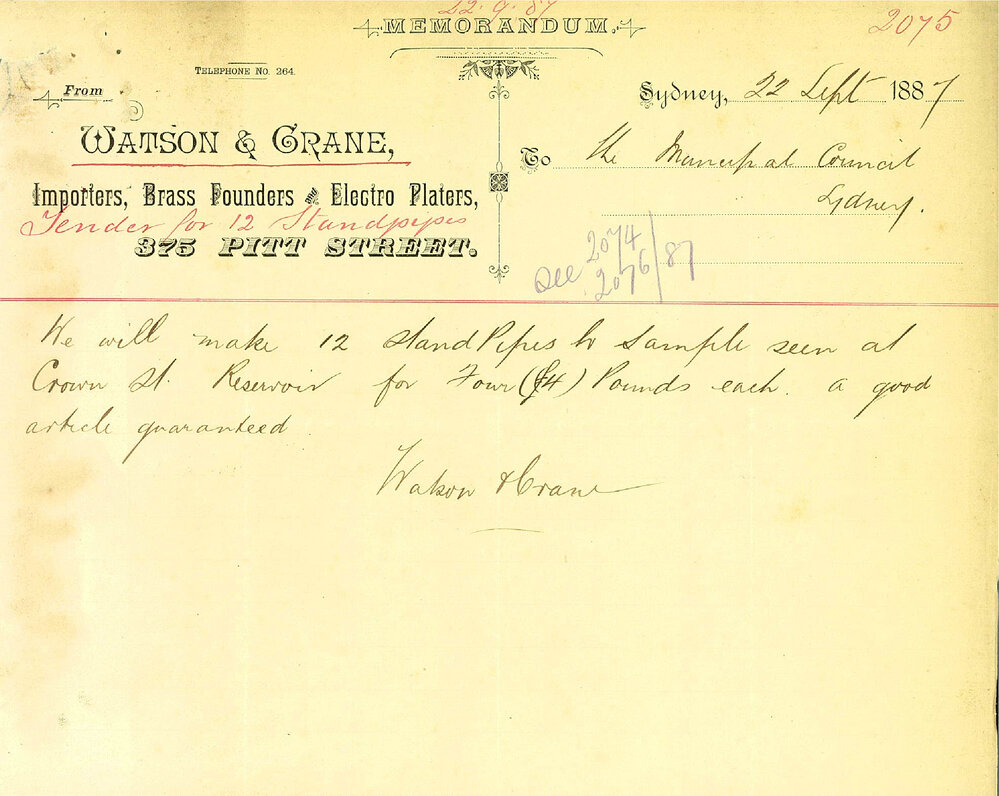 22.9.87
MEMORANDUM.
2075
TELEPHONE NO. 264.
From
WATSON & CRANE,
Importers, Brass Founders and Electro Platers,
Tender for 12 Standpipes
375 PITT STREET.
Sydney, 22 Sept 1887
To the Municipal Council
Sydney.
See 2074
2076/87
We will make 12 Stand Pipes to Sample seen at
Crown St. Reservoir for Four (£4) Pounds each. a good
article guaranteed
Watson & Crane